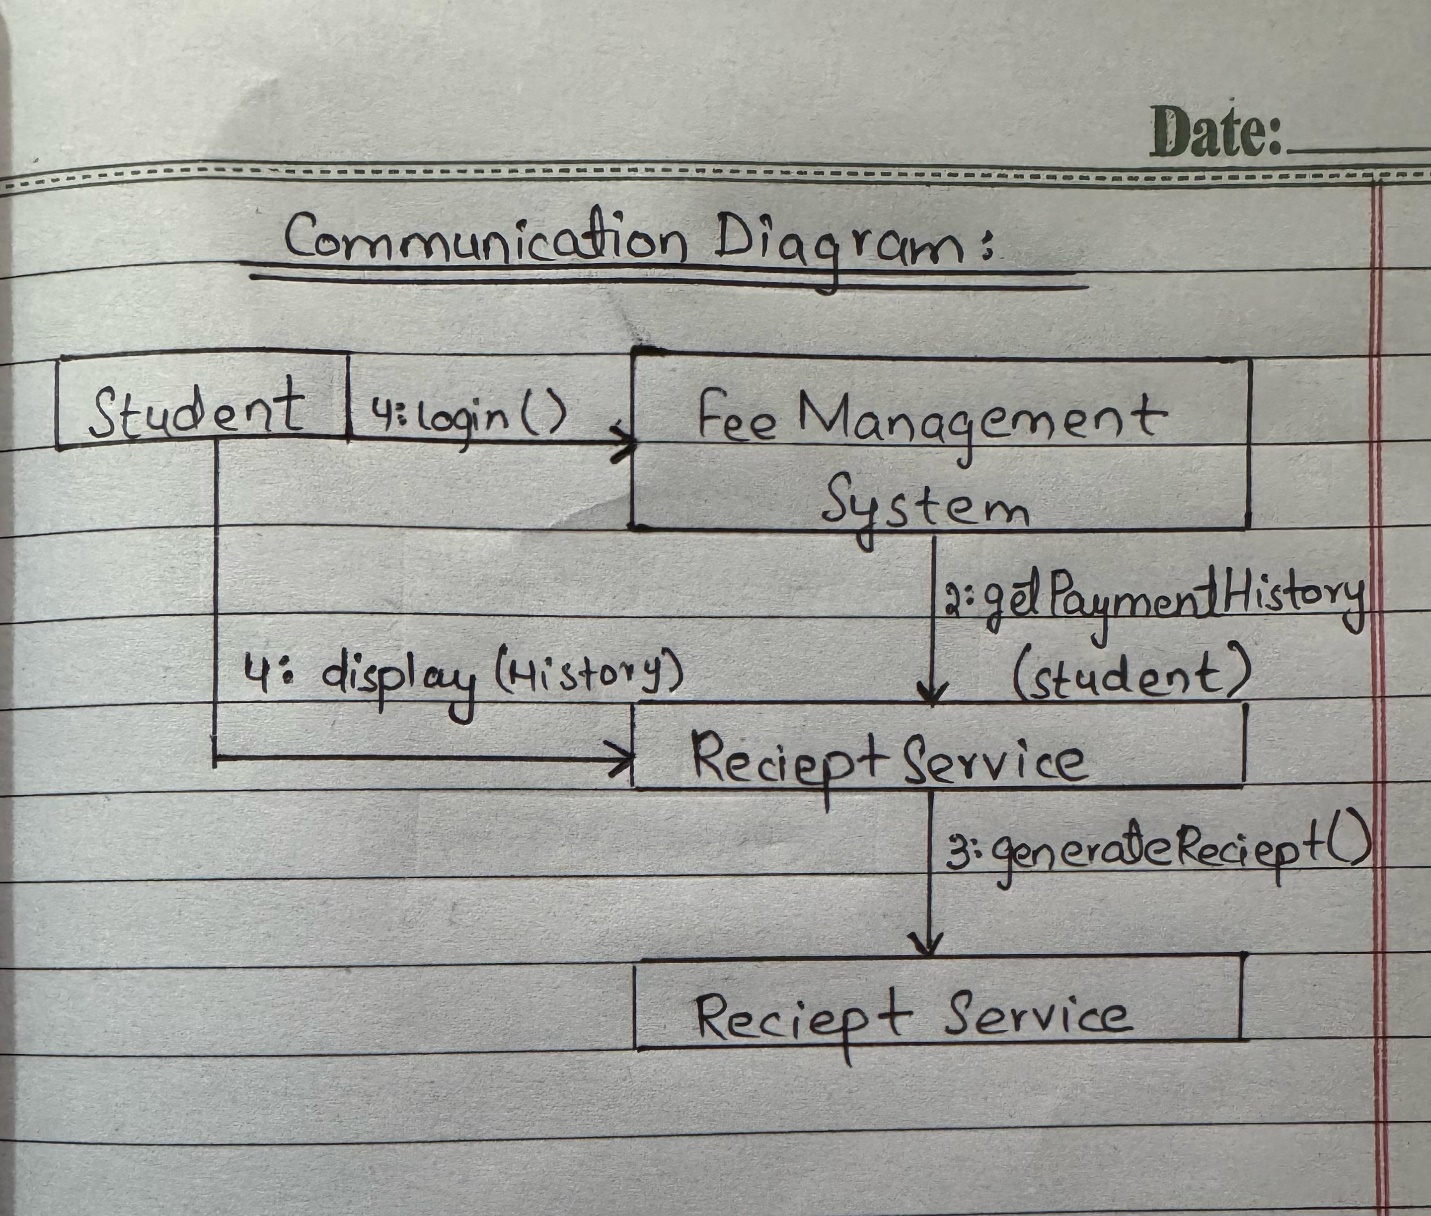 Date:
Communication Diagram:
Student
4: login()
Fee Management
System
2: getPaymentHistory
(student)
4: display (History)
Reciept Service
3: generateReciept()
Reciept Service